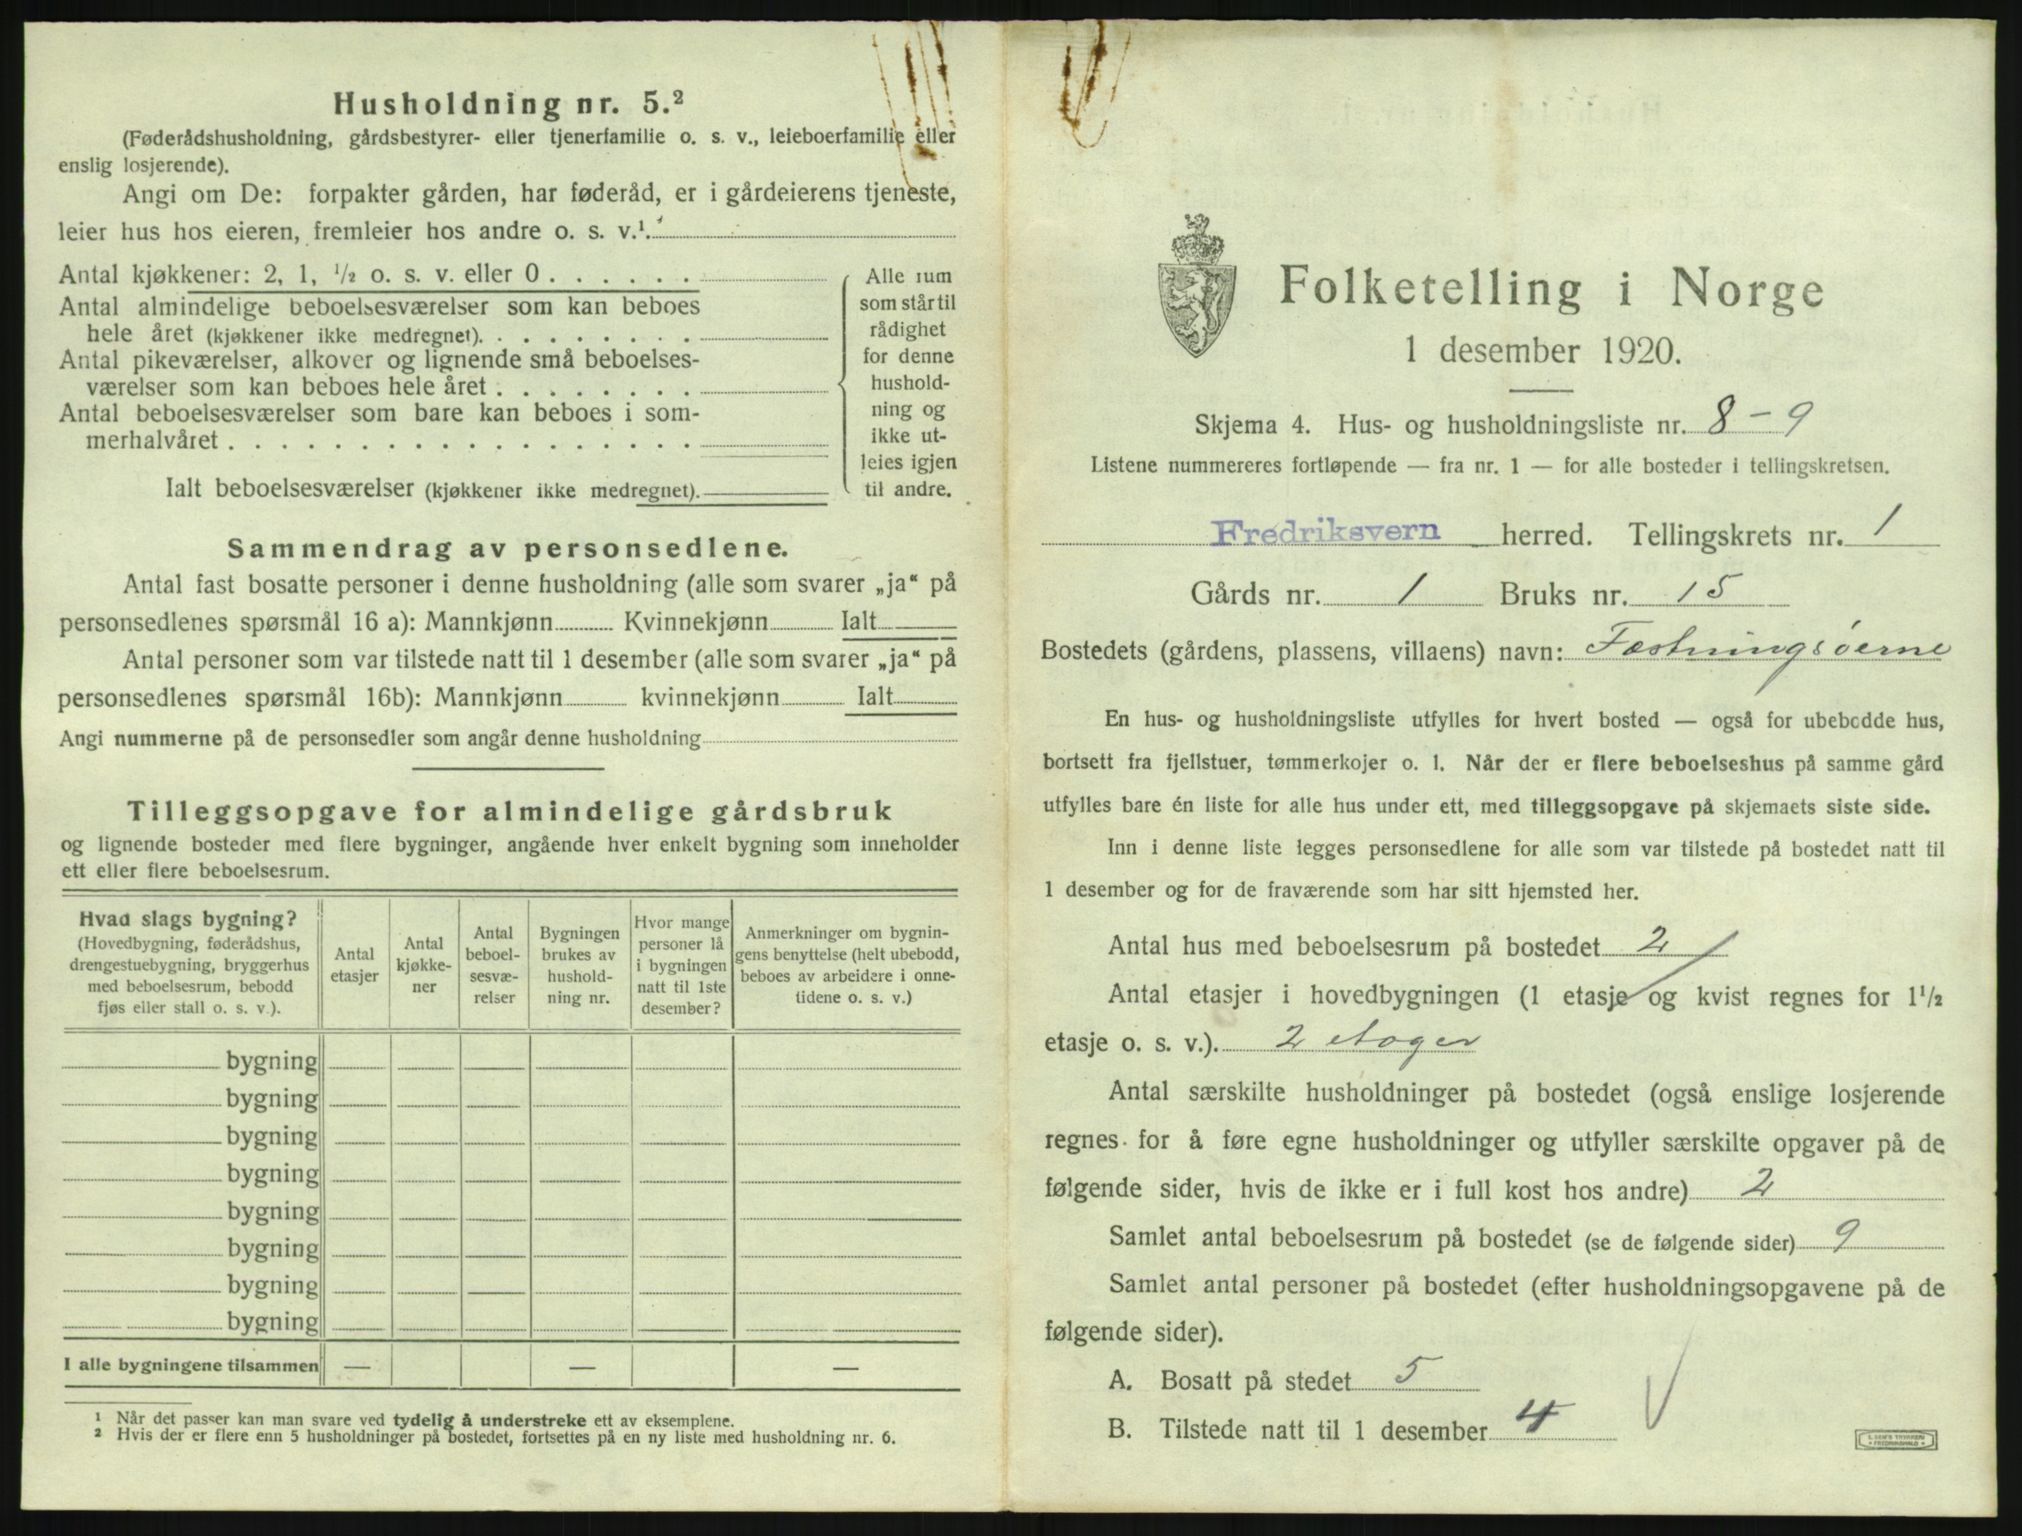 Husholdning nr. 5.²
(Føderådshusholdning, gårdsbestyrer- eller tjenerfamilie o. s. v., leieboerfamilie eller
enslig losjerende).
Angi om De: forpakter gården, har føderåd, er i gårdeierens tjeneste,
leier hus hos eieren, fremleier hos andre o. s. v.¹.
Antal kjøkkener: 2, 1, ¹/₂ o. s. v. eller 0 . . . . . .
Antal almindelige beboelsesværelser som kan beboes
hele året (kjøkkener ikke medregnet). . . . . . . . .
Antal pikeværelser, alkover og lignende små beboelses-
værelser som kan beboes hele året . . . . . . . .
Antal beboelsesværelser som bare kan beboes i som-
merhalvåret . . . . . . . . . . . . . . . . . .
Ialt beboelsesværelser (kjøkkener ikke medregnet).
Alle rum
som står til
rådighet
for denne
hushold-
ning og
ikke ut-
leies igjen
til andre.
Sammendrag av personsedlene.
Antal fast bosatte personer i denne husholdning (alle som svarer „ja“ på
personsedlenes spørsmål 16 a): Mannkjønn Kvinnekjønn Ialt
Antal personer som var tilstede natt til 1 desember (alle som svarer „ja“ på
personsedlenes spørsmål 16b): Mannkjønn kvinnekjønn Ialt
Angi nummerne på de personsedler som angår denne husholdning
Tilleggsopgave for almindelige gårdsbruk
og lignende bosteder med flere bygninger, angående hver enkelt bygning som inneholder
ett eller flere beboelsesrum.
Hvad slags bygning?
(Hovedbygning, føderådshus,
drengestuebygning, bryggerhus
med beboelsesrum, bebodd
fjøs eller stall o. s. v.).
Antal
etasjer
Antal
kjøkke-
ner
Antal
beboel-
sesvæ-
relser
Bygningen
brukes av
hushold-
ning nr.
Hvor mange
personer lå
i bygningen
natt til 1ste
desember?
Anmerkninger om bygnin-
gens benyttelse (helt ubebodd,
beboes av arbeidere i onne-
tidene o. s. v.)
bygning
bygning
bygning
bygning
bygning
bygning
bygning
bygning
I alle bygningene tilsammen — — —
¹ Når det passer kan man svare ved tydelig å understreke ett av eksemplene.
² Hvis der er flere enn 5 husholdninger på bostedet, fortsettes på en ny liste med husholdning nr. 6.
Folketelling i Norge
1 desember 1920.
Skjema 4. Hus- og husholdningsliste nr. 8 - 9
Listene nummereres fortløpende — fra nr. 1 — for alle bosteder i tellingskretsen.
Fredriksvern herred. Tellingskrets nr. 1
Gårds nr. 1 Bruks nr. 15
Bostedets (gårdens, plassens, villaens) navn: Fæstningsöerne
En hus- og husholdningsliste utfylles for hvert bosted — også for ubebodde hus,
bortsett fra fjellstuer, tømmerkojer o. l. Når der er flere beboelseshus på samme gård
utfylles bare én liste for alle hus under ett, med tilleggsopgave på skjemaets siste side.
Inn i denne liste legges personsedlene for alle som var tilstede på bostedet natt til
1 desember og for de fraværende som har sitt hjemsted her.
Antal hus med beboelsesrum på bostedet 2
Antal etasjer i hovedbygningen (1 etasje og kvist regnes for 1¹/₂
etasje o. s. v.). 2 etager
Antal særskilte husholdninger på bostedet (også enslige losjerende
regnes for å føre egne husholdninger og utfyller særskilte opgaver på de
følgende sider, hvis de ikke er i full kost hos andre) 2
Samlet antal beboelsesrum på bostedet (se de følgende sider) 9
Samlet antal personer på bostedet (efter husholdningsopgavene på de
følgende sider).
A. Bosatt på stedet 5
B. Tilstede natt til 1 desember 4